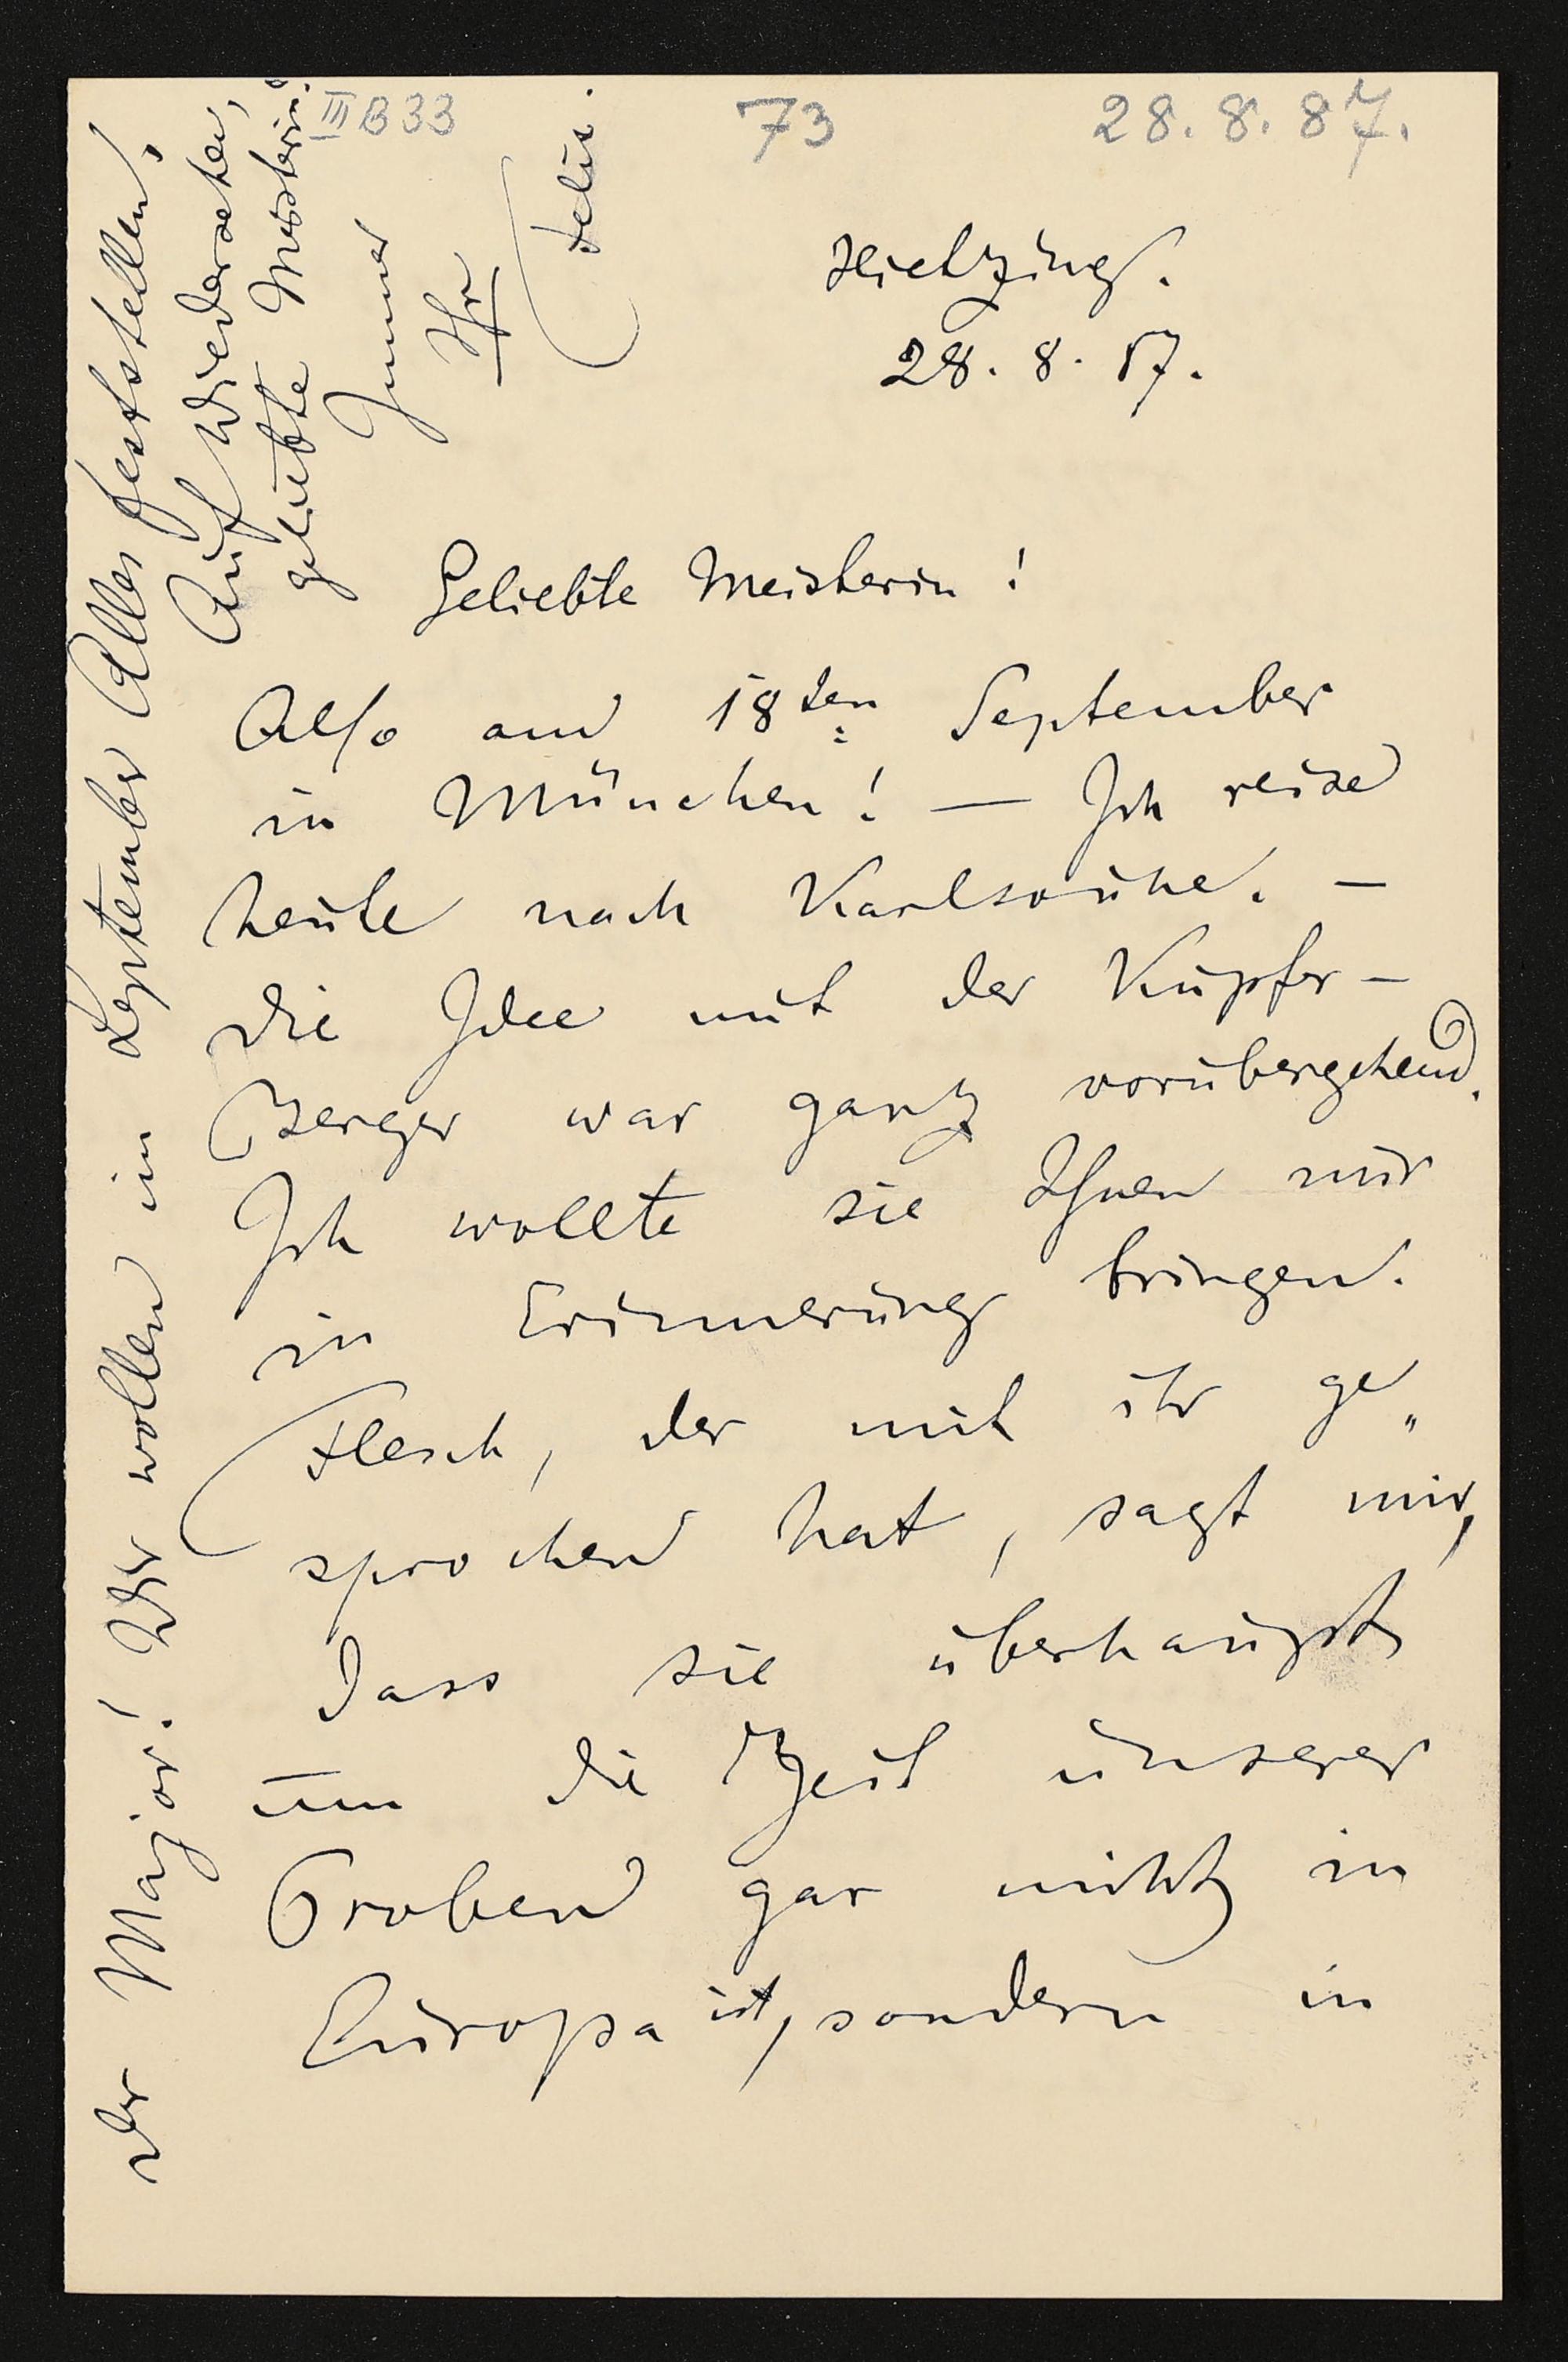 III B 33
73
28. 8. 87.
Hietzing.
28. 8. 87.
Geliebte Meisterin!
Also am 18ten September
in München! — Ich reise
heute nach Karlsruhe. —
Die Idee mit der Kupfer-
Berger war ganz vorübergehend.
Ich wollte sie Ihnen nur
in Erinnerung bringen.
Flesch, der mit ihr ge„
sprochen hat, sagt mir,
dass sie überhaupt
um die Zeit unserer
Proben gar nicht in
Europa ist, sondern in
der Major! Wir wollen im September Alles feststellen!
Auf Wiedersehen,
geliebte Meisterin!
Immer
Ihr
Felix.